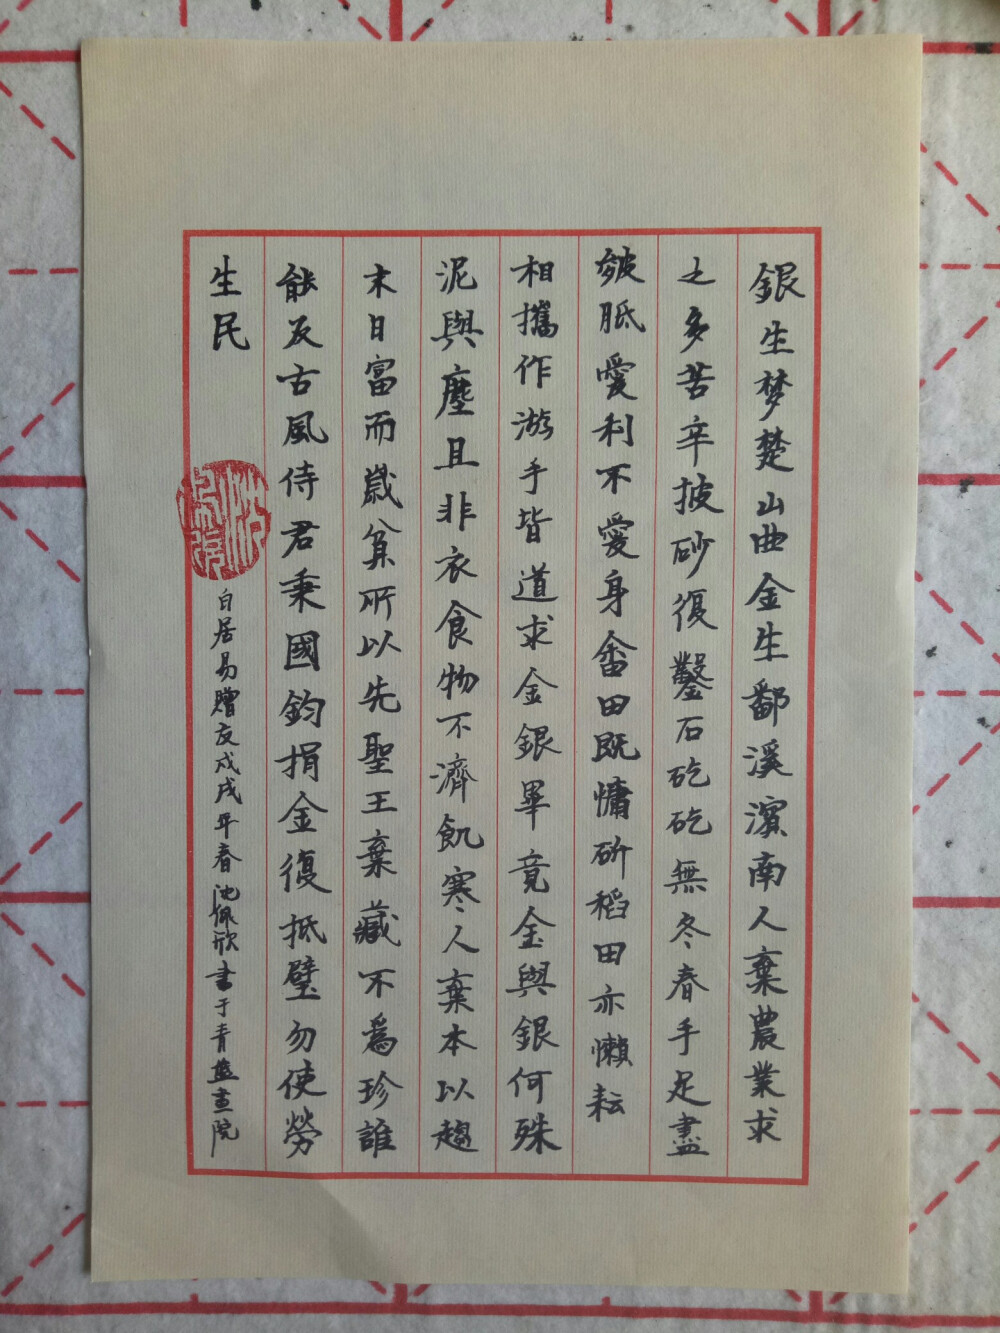 銀生梦楚山曲金生鄱溪濵南人棄農業求
之多苦辛披砂復鑿石矻矻無冬春手足盡
皴胝愛利不愛身畬田既慵斫稻田亦懶耘
相攜作游手皆道求金銀畢竟金與銀何殊
泥與塵且非衣食物不濟飢寒人棄本以趨
末日富而歲貧所以先聖王棄藏不爲珍誰
能反古風侍君秉國鈞捐金復抵璧勿使勞
生民
白居易贈友戊戌年春沈佩欣書于青藍畫院